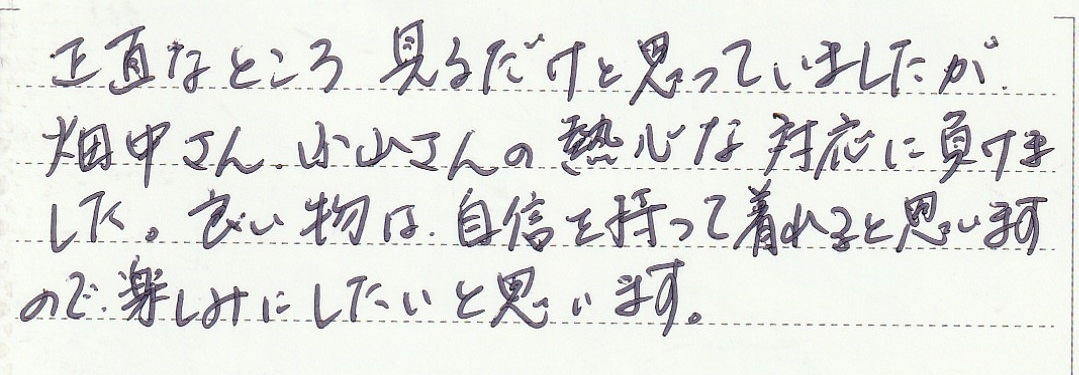 正直なところ 見るだけと思っていましたが、
畑中さん、小山さんの 熱心な 対応に負けま
した。良い物は、自信を持って着れると思います
ので、楽しみにしたいと思います。